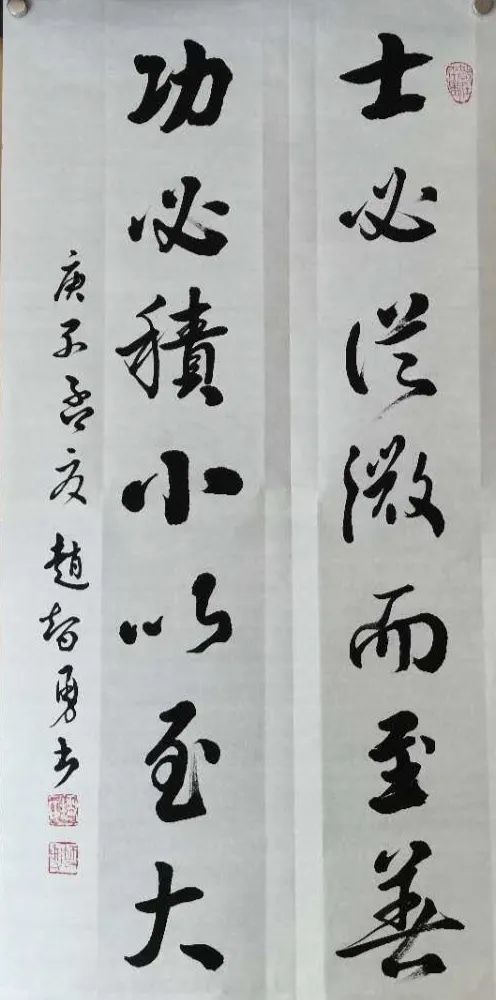 士必從微而至善
功必積小以至大
庚子孟夏 趙智勇书